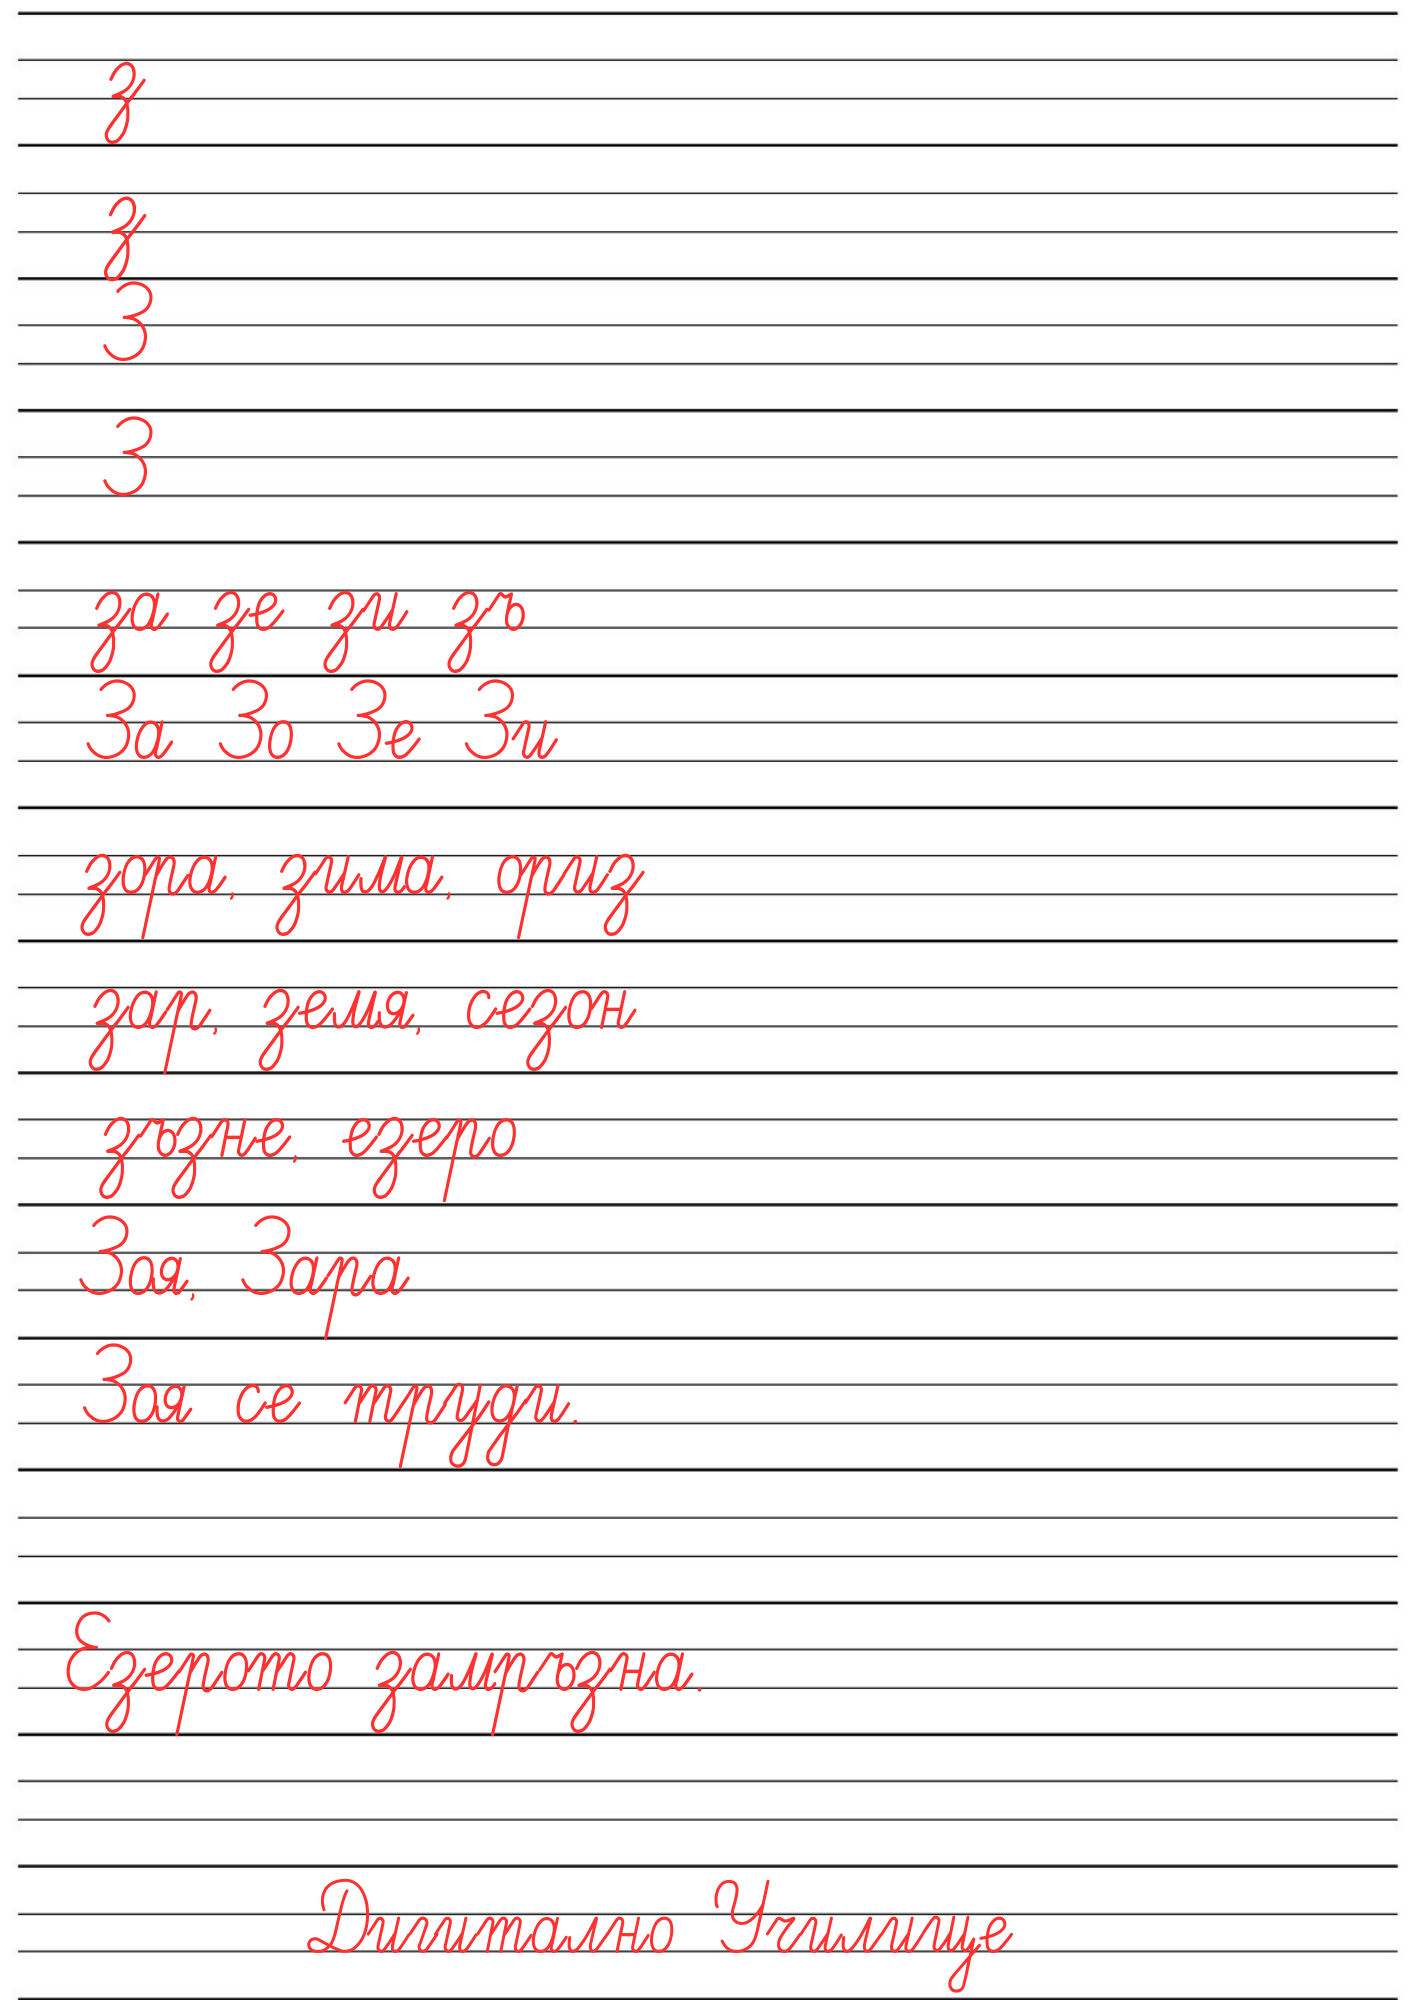 з
з
З
З
за зе зи зъ
За Зо Зе Зи
зора, зима, ориз
зар, земя, сезон
зъзне, езеро
Зоя, Зара
Зоя се труди.
Езерото замръзна.
Дигитално Училище